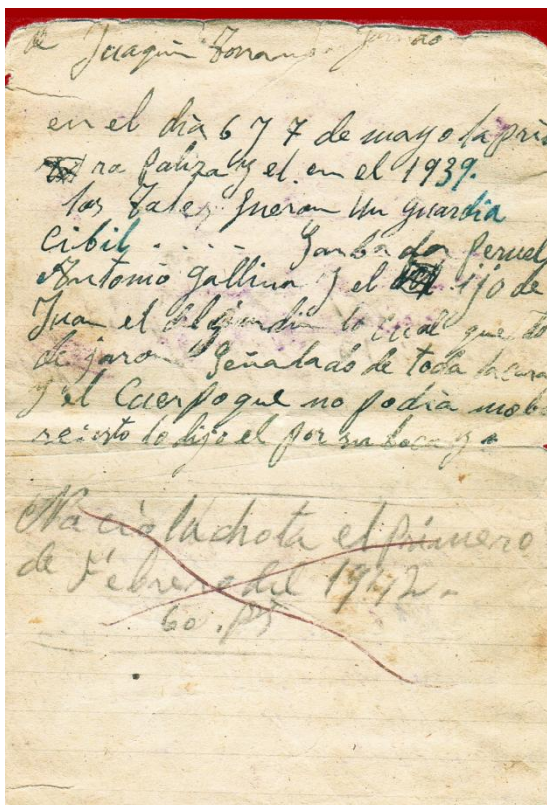 de Joaquin
en el dia 6 y 7 de mayo la pri
ra Paliza y el en el 1939.
los tales fueron un guardia
Cibil . . . . .
Antonio gallina y el ijo de
Juan el del jardin lo cual que lo
de jaron Señalado de toda la cara
y el Cuerpo que no podia mobe
se esto lo dijo el por su boca y a
Nacio la chota el primero
de Febrero del 1942.
60. Pts